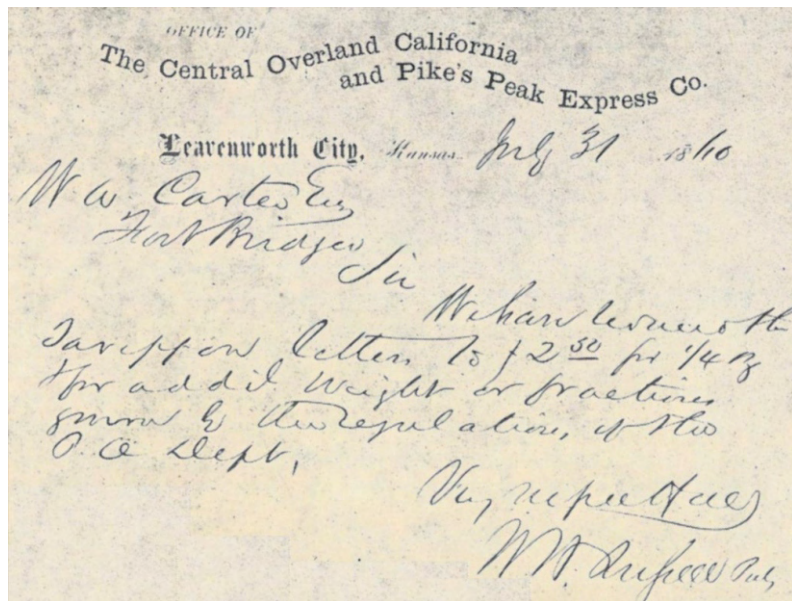 OFFICE OF
The Central Overland California
and Pike's Peak Express Co.
Leavenworth City, Kansas July 31 1860
W. W. Carter Esq
Fort Bridger
Sir
We have
Tariff on letters to $2 50 per 1/4 oz
for addl. weight or fractions
the regulations of the
P. O. Dept,
Very respectfully
W H. Russell Prest